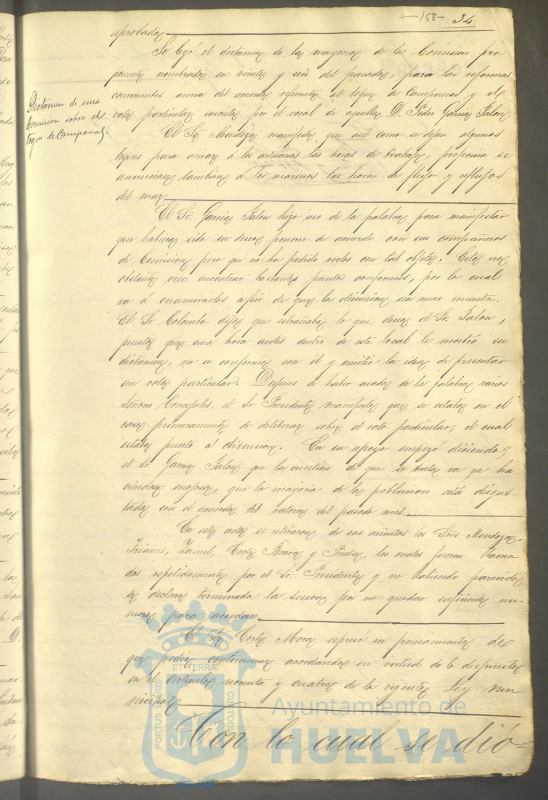 -155- 34
aprobada
Se leyó el dictamen de la mayoria de la Comision pro-
ponente nombrada en veinte y seis del pasado para las reformas
convenientes acerca del acuerdo referente al toque de Campanas y el
voto particular suscrito por el vocal de aquella D. Pedro Garcia Jalon.
Dictamen de una
Comision sobre el
toque de Campanas.
El Sr. Mendoza manifestó que así como se dejan algunos
toques para avisar á los artesanos las horas de trabajo, proponia se
anunciaran tambien á los marinos las horas de flujo y reflujo
del mar
El Sr. Garcia Jalon hizo uso de la palabra para manifestar
que hubiera sido su deseo ponerse de acuerdo con sus compañeros
de Comision pero que no ha podido verlos con tal objeto. Esto no
obstante cree encontrar bastantes puntos conformes, por lo cual
va á enumerarlos á fin de que la discusion sea mas concreta.
El Sr. Colombo dijo que estrañaba lo que decia el Sr. Jalon,
puesto que una hora antes dentro de este local le mostró su
dictamen, no se conformó con él y emitió la idea de presentar
un voto particular. Despues de haber usado de la palabra varios
Señores Concejales, el Sr. Presidente manifestó que se estaba en el
caso primeramente de deliberar sobre el voto particular, el cual
estaba puesto á discusion. En su apoyo empezó diciendo
el Sr. Garcia Jalon que la cuestion de que se trata va ya ha-
ciendose enojosa, que la mayoria de la poblacion está disgus-
tada con el acuerdo del catorce del pasado mes.
En este acto se retiraron de sus asientos los Sres. Mendoza,
Trianes, Zamel, Cortés, y los cuales fueron llama-
dos repetidamente por el Sr. Presidente y no habiendo parecido
se declaró terminada la sesion por no quedar suficiente nu-
mero para acordar
El Sr. Cortés Mora espresó su pensamiento de
que podia continuarse acordando en virtud de lo dispuesto
en el articulo noventa y cuatro de la vigente Ley mu-
nicipal
Con lo cual se dió-
PORTUS MARIS ET TERRAE CUSTODIA
Ayuntamiento de
HUELVA